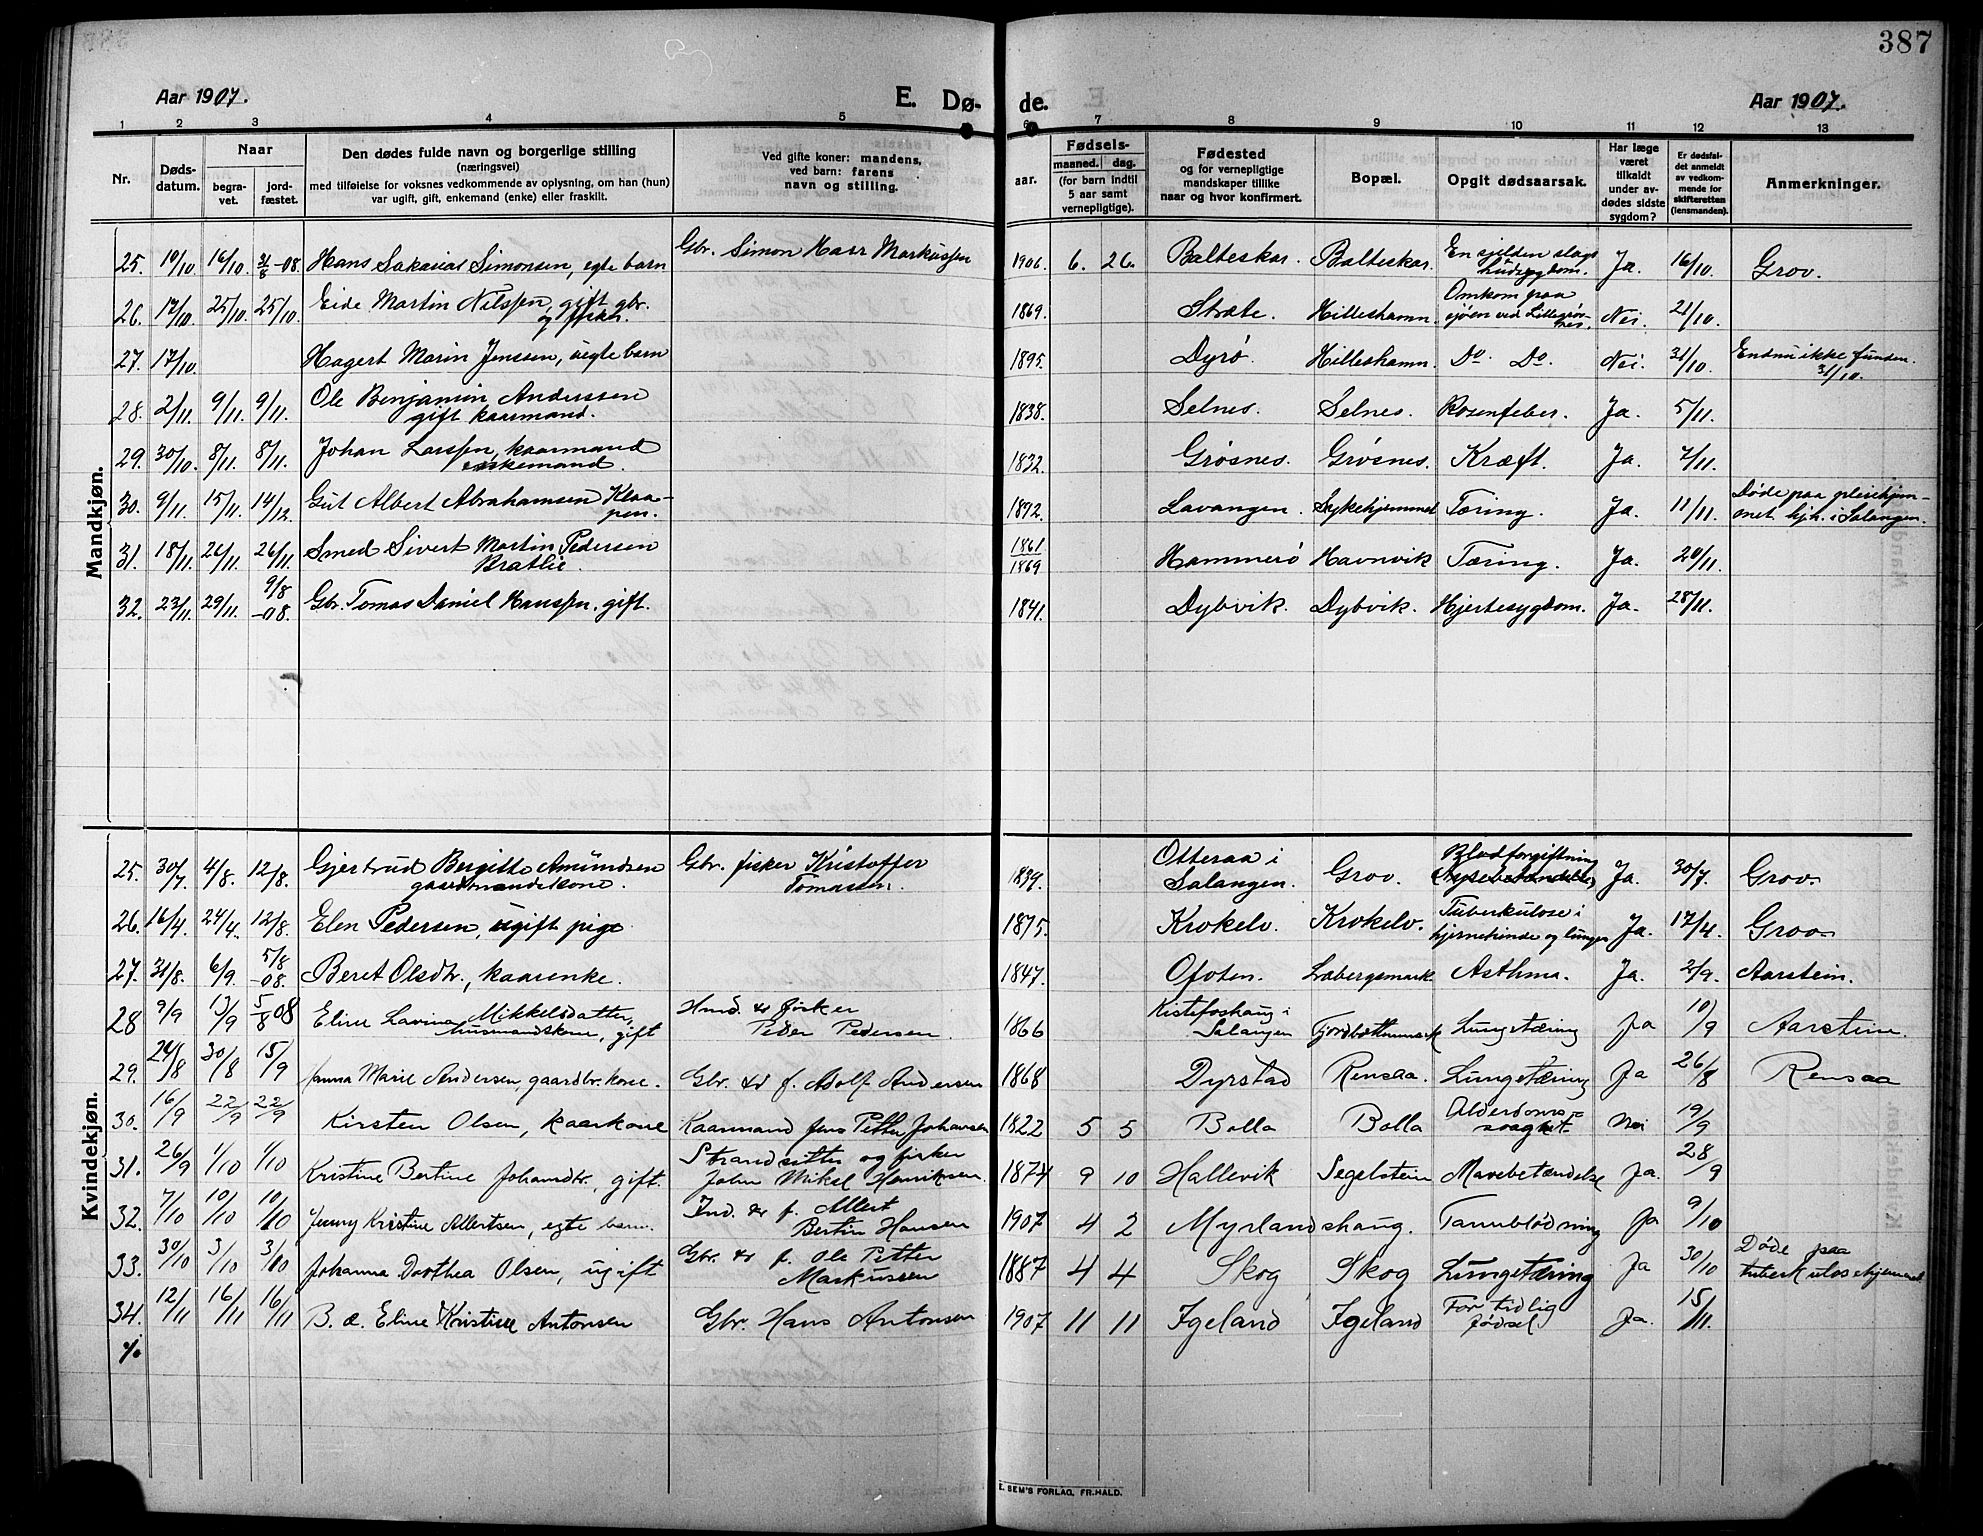 387
Aar 1907.
E. Dø- de.
Aar 1907.
1 2 3 4 5 6 7 8 9 10 11 12 13
Nr.
Døds-
datum.
Naar
begra-
vet.
jord-
fæstet.
Den dødes fulde navn og borgerlige stilling
(næringsvei)
med tilføielse for voksnes vedkommende av oplysning, om han (hun)
var ugift, gift, enkemand (enke) eller fraskilt.
Ved gifte koner: mandens,
ved barn: farens
navn og stilling.
Fødsels-
aar.
maaned. dag.
(for barn indtil
5 aar samt
vernepligtige).
Fødested
og for vernepligtige
mandskaper tillike
naar og hvor konfirmert.
Bopæl.
Opgit dødsaarsak.
Har læge
været
tilkaldt
under av-
dødes sidste
sygdom?
Er dødsfal-
det anmeldt
av vedkom-
mende for
skifteretten
(lensmanden).
Anmerkninger.
Mandkjøn.
25. 10/10. 16/10. 31/8-08. Hans Sakarias Simonsen, egte barn Gbr. Simon Haar Markussen 1906. 6. 26. Balteskar. Balteskar. En sjelden slags Ja. 16/10. Grov.
hudsygdom.
26. 17/10. 25/10. 25/10. Eide Martin Nilssen, gift gbr. 1869. Strate. Hilleshamn. Omkom paa Nei. 21/10.
og fisker. sjøen ved Lillegrøs-
nes.
27. 17/10. Hagert Marin Jenssen, uegte barn 1895. Dyrø. Hilleshamn. Do. Do. Nei. 31/10. Endnu ikke funden.
31/10.
28. 2/11. 9/11. 9/11. Ole Benjamin Anderssen 1838. Selnes. Selnes. Rosenfeber. Ja. 5/11.
gift kaarmand.
29. 30/10. 8/11. 8/11. Johan Larssen, kaarmand 1832. Grøsnes. Grøsnes. Kræft. Ja. 7/11.
enkemand.
30. 9/11. 15/11. 14/12. Gut Albert Abrahamsen Klaa- 1892. Lavangen. Sykehjemmet Tæring. Ja. 11/11. Døde paa pleiehjem-
pen. met hjh. i Salangen.
31. 18/11. 26/11. 26/11. Smed Sivert Martin Pedersen 1861 Hammerø Havnvik Tæring. Ja. 20/11.
Bratlie. 1869
32. 23/11. 29/11. 9/8 -08. Gbr. Tomas Daniel Hanssen, gift. 1841. Dybvik. Dybvik. Hjertesygdom. Ja. 28/11.
Kvindekjøn.
25. 30/7. 4/8. 12/8. Gjertrud Bergitte Amundsen Gbr. fisker Kristoffer 1839. Otteraa i Grov. Blodforgiftning Ja. 30/7. Grov.
gaardmandskone. Tomassen. Salangen.
26. 16/4. 24/4. 12/8. Elen Pedersen, ugift pige 1875. Krokelv. Krokelv. Tuberkulose i Ja. 17/4. Grov.
hjernehinde og lunger
27. 31/8. 6/9. 5/8 -08. Beret Olsdtr., kaarenke. 1847. Ofoten. Labergsmark. Asthma. Ja. 2/9. Aarstein.
28 9/9 13/9 5/8 08 Eline Lavina Mikkelsdatter, Hmd. & fisker 1866 Kistefoshaug i Fjordbotnmark Lungetæring Ja 10/9 Aarstein.
husmandskone, gift Peder Pedersen. Salangen
29. 24/8 30/8 15/9 Hanna Marie Andersen, gaardbr. kone. Gbr. & f. Adolf Andersen 1868 Dyrstad Rensaa. Lungetæring Ja 26/8 Rensaa
30. 16/9 22/9 22/9 Kirsten Olsen, kaarkone Kaarmand Jens Petter Johansen 1822 5 5 Bolla Bolla Alderdoms- Nei 19/9
svaghet.
31. 26/9 1/10 1/10 Kristine Bertine Johansdtr., gift. Strandsitter og fisker 1874 9 10 Hallevik Segelstein Mavebetændelse Ja. 28/9
John Mikal Henriksen.
32. 7/10 10/10 10/10 Jenny Kristine Albertsen, egte barn. Ind. & f. Albert 1907 4 2 Myrlandshaug. Tarmblødning Ja 9/10
Bertin Hansen
33. 30/10 3/10 3/10 Johanna Dorthea Olsen, ugift Gbr. & f. Ole Petter 1887 4 4 Skog Skog Lungetæring Ja 30/10 Døde paa
Markussen tuberkulosehjemmet
34. 12/11 16/11 16/11 B. æ. Eline Kristine Antonsen Gbr. Hans Antonsen 1907 11 11 Igeland Igeland For tidlig Ja. 15/11.
fødsel
E. SEM'S FORLAG, FR.HALD.